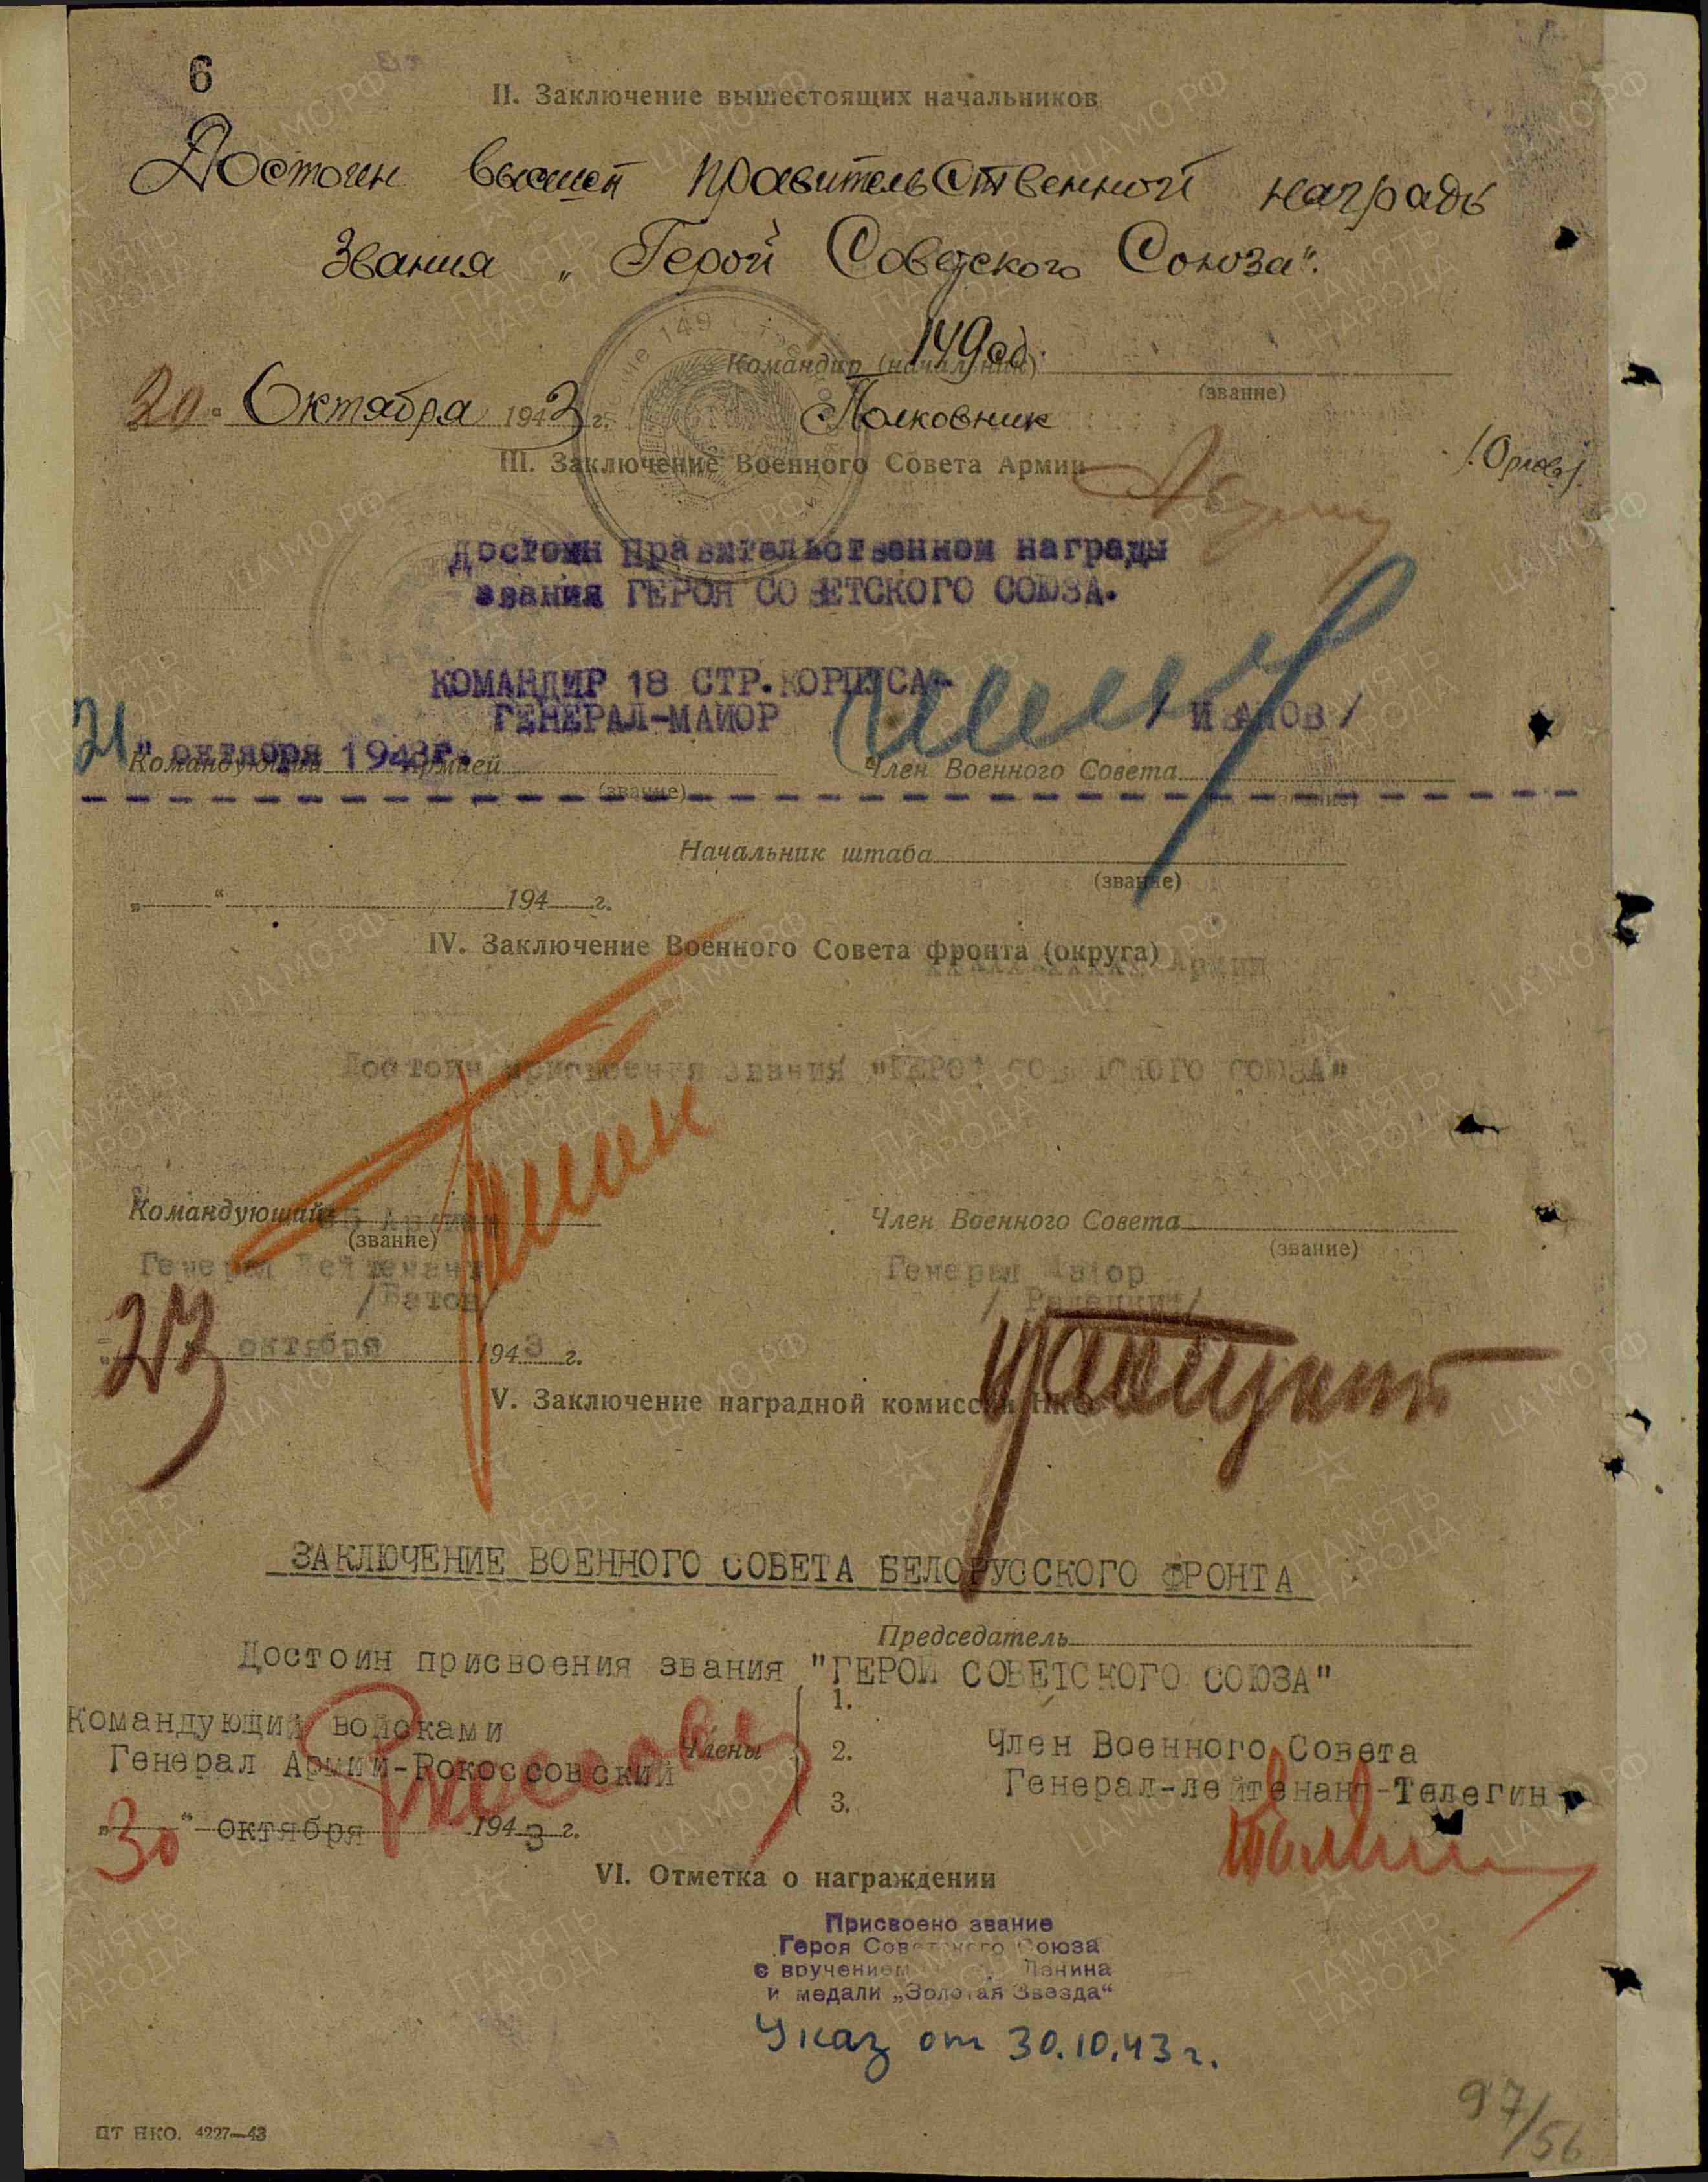 6
II. Заключение вышестоящих начальников
Достоин высшей правительственной награды
звания „Герой Советского Союза".
Командир (начальник) 149 сд.
(звание)
20 Октября 1943 г.
Полковник
/Орлов/.
III. Заключение Военного Совета Армии
достоин правительственной награды
звания ГЕРОЯ СОВЕТСКОГО СОЮЗА.
КОМАНДИР 18 СТР.КОРПУСА-
ГЕНЕРАЛ-МАЙОР / ИВАНОВ/
21 " октября 1943г.
Командующий Армией
(звание)
Член Военного Совета
(звание)
Начальник штаба
(звание)
„ “ 194 г.
IV. Заключение Военного Совета фронта (округа)
Армии
Достоин присвоения звания "ГЕРОЙ СОВЕТСКОГО СОЮЗА"
Командующий 65 Армией
(звание)
Член Военного Совета
(звание)
Генерал Лейтенант
/Батов/
Генерал Майор
/ Радецкий/
23 октября 1943 г.
V. Заключение наградной комиссии НКО
ЗАКЛЮЧЕНИЕ ВОЕННОГО СОВЕТА БЕЛОРУССКОГО ФРОНТА
Председатель
Достоин присвоения звания "ГЕРОЙ СОВЕТСКОГО СОЮЗА"
Командующий войсками
Генерал Армии-Рокоссовский
Члены
1.
2.
3.
Член Военного Совета
Генерал-лейтенант-Телегин
„30“ октября 1943 г.
VI. Отметка о награждении
Присвоено звание
Героя Советского Союза
с вручением Ленина
и медали „Золотая Звезда“
Указ от 30.10.43 г.
97/56
ПТ НКО. 4227—43